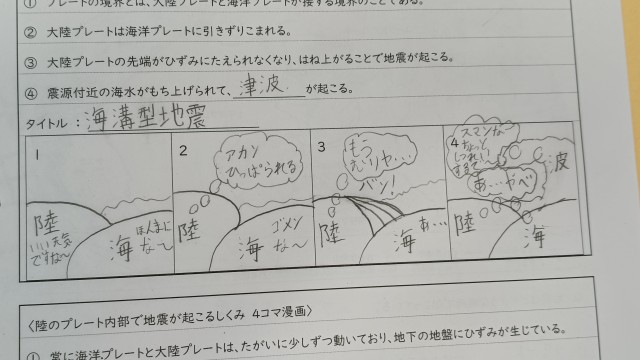 ① プレートの境界とは、大陸プレートと海洋プレートが接する境界のことである。
② 大陸プレートは海洋プレートに引きずりこまれる。
③ 大陸プレートの先端がひずみにたえられなくなり、はね上がることで地震が起こる。
④ 震源付近の海水がもち上げられて、津波が起こる。
タイトル：海溝型地震
1
陸
いい天気
ですな〜
海
ほんまに
な〜
2
アカン
ひっぱられる
陸
海
ゴメン
な〜
3
もう
バン！
陸
海
あ…
4
スマンな〜
ちょっと
しつれい
するで
波
あ…やべ
陸
海
〈陸のプレート内部で地震が起こるしくみ 4コマ漫画〉
① 常に海洋プレートと大陸プレートは、たがいに少しずつ動いており、地下の地盤にひずみが生じている。